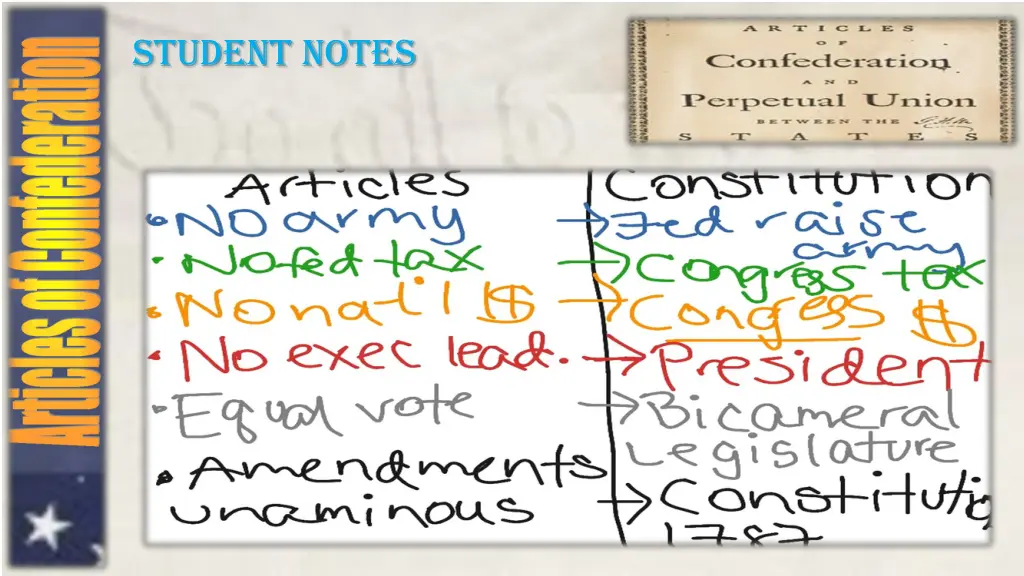 Articles of Confederation
STUDENT NOTES
ARTICLES
OF
Confederation
AND
Perpetual Union
BETWEEN THE
STATES
Articles
Constitution
• NO army
→ Fed raise army
• No fed tax
→ Congress tax
• No nat'l $
→ Congress $
• No exec lead.
→ President
• Equal vote
→ Bicameral
Legislature
• Amendments
unaminous
→ Constitutio
1787